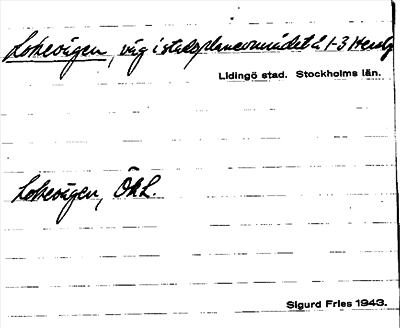 Lokevägen, väg i stadsplaneområdet å 1-3 Hersby
Lidingö stad. Stockholms län.
Lokevägen, ÖhL
Sigurd Fries 1943.